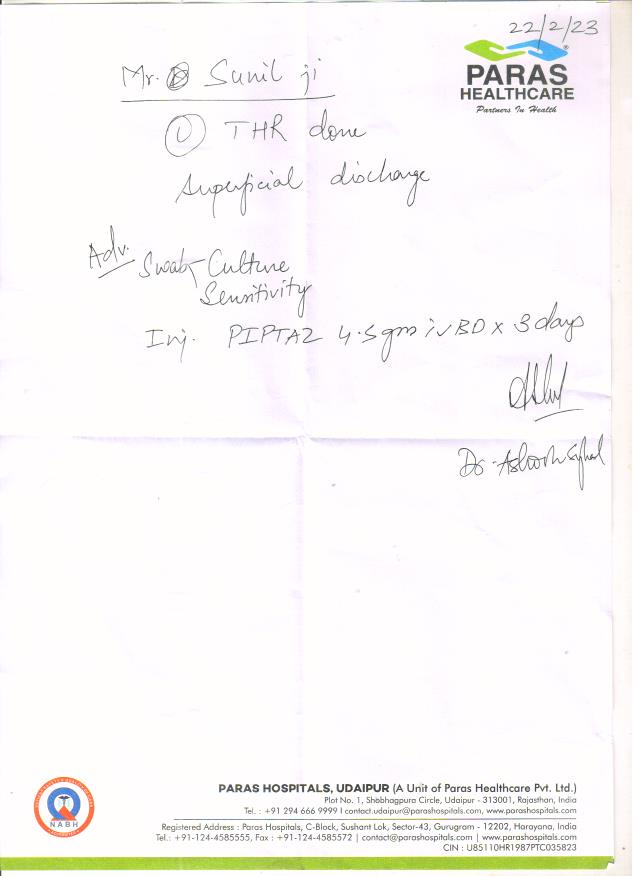 22/2/23
PARAS
HEALTHCARE
Partners In Health
Mr. Sunil ji
THR done
superficial discharge
Adv.
Swab Culture
Sensitivity
Inj. PIPTAZ 4.5 gm iv BD x 3 days
Dr. Ashish
NABH
PARAS HOSPITALS, UDAIPUR (A Unit of Paras Healthcare Pvt. Ltd.)
Plot No. 1, Shobhagpura Circle, Udaipur - 313001, Rajasthan, India
Tel. : +91 294 666 9999 I contact.udaipur@parashospitals.com, www.parashospitals.com
Registered Address : Paras Hospitals, C-Block, Sushant Lok, Sector-43, Gurugram - 12202, Harayana, India
Tel.: +91-124-4585555, Fax : +91-124-4585572 | contact@parashospitals.com | www.parashospitals.com
CIN : U85110HR1987PTC035823